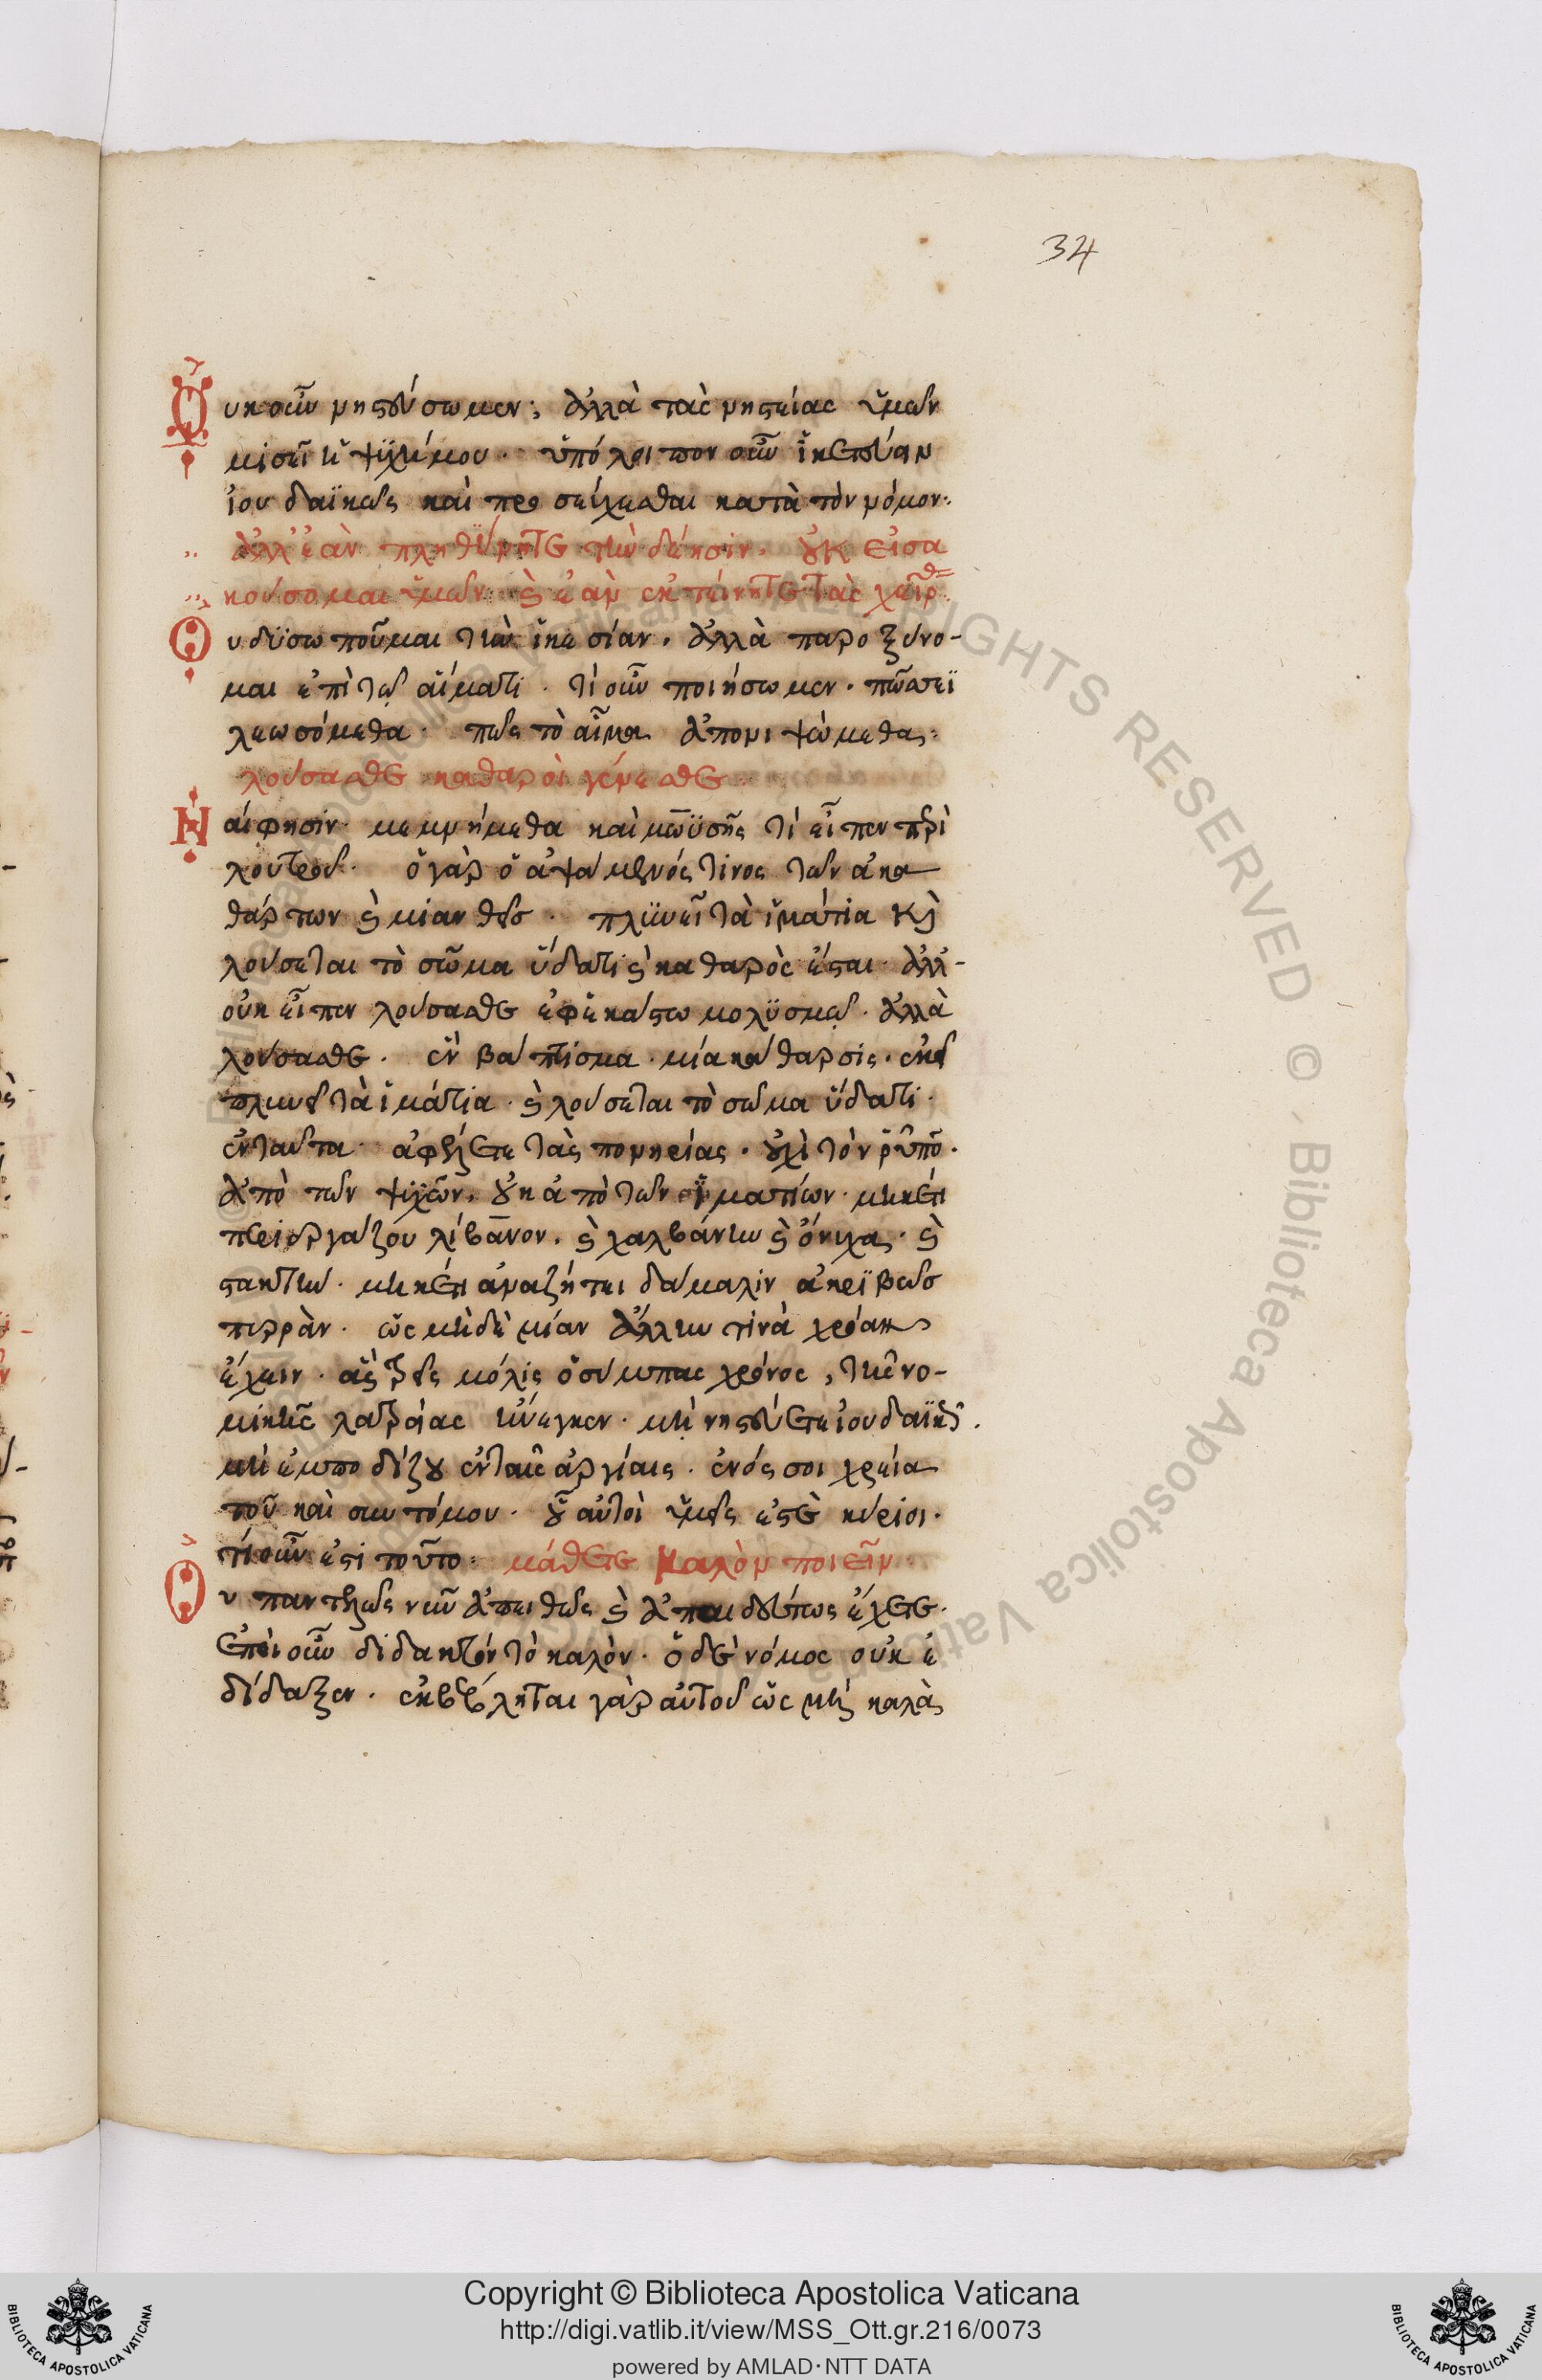 34
Ουκοῦν νηστεύσωμεν; ἀλλὰ τὰς νηστείας ὑμῶν
μισεῖ ἡ ψυχή μου. ὑπόλοιπον οὖν ἱκετεύειν
ἰουδαϊκῶς καὶ προσεύχεσθαι κατὰ τὸν νόμον:
ἀλλ' ἐὰν πληθύνητε τὴν δέησιν. οὐκ εἰσα
κούσομαι ὑμῶν: καὶ ἐὰν ἐκτείνητε τὰς χεῖρ
Ου δυσωποῦμαι τὴν ἱκεσίαν. ἀλλὰ παροξύνο-
μαι ἐπὶ τῷ αἵματι. τί οὖν ποιήσωμεν. πῶς σε ἱ
λεωσόμεθα. πῶς τὸ αἷμα ἀπονιψώμεθα;
λούσασθε καθαροὶ γένεσθε
Ναί φησιν. μεμνήμεθα καὶ μωϋσῆς τί εἶπεν περὶ
λουτροῦ. ὁ γὰρ ὁ ἁψάμενός τινος τῶν ἀκα
θάρτων καὶ μιανθεὶς. πλυνεῖ τὰ ἱμάτια καὶ
λούσεται τὸ σῶμα ὕδατι καὶ καθαρὸς ἔσται. ἀλλ'-
οὐκ εἶπεν λούσασθε ἐφ' ἑκάστω μολυσμῷ. ἀλλὰ
λούσασθε. ἓν βάπτισμα. μία κάθαρσις. ἐκεῖ
πλυνεῖ τὰ ἱμάτια. καὶ λούσεται τὸ σῶμα ὕδατι.
ἐνταῦτα ἀφέλετε τὰς πονηρίας. οὐχὶ τὸν ῥύπον.
ἀπὸ τῶν ψυχῶν. οὐκ ἀπὸ τῶν ἱματίων. μηκέτι
περιεργάζου λίβανον. καὶ χαλβάνην καὶ ὄνυχας. καὶ
στακτὴν. μηκέτι ἀναζήτει δάμαλιν ἀκριβῶς
πυρρὰν. ὡς μὴδὲ μίαν ἄλλην τινὰ χρόαν
ἔχειν. ἃς τρεῖς μόλις ὁ σύμπας χρόνος, τῆς νο-
μικῆς λατρείας ἤνεγκεν. μὴ νηστεύετε ἰουδαϊκῶς.
μὴ ἐμποδίζου ἐν ταῖς ἀργίαις. ἑνός σοι χρεία
τοῦ καὶ συντόμου. οὗ αὐτοὶ ὑμεῖς ἐστὲ κύριοι.
τί οὖν ἐστι τοῦτο: μάθετε καλὸν ποιεῖν
Ου παντελῶς νῦν ἀπειθῶς καὶ ἀπαιδεύτως ἔχετε.
ἐπεὶ οὖν διδακτόν τὸ καλὸν. ὁ δὲ νόμος οὐκ ἐ
δίδαξεν. ἐκβέβληται γὰρ αὐτοῦ ὡς μὴ καλὰς
DIGHTS RESERVED © Biblioteca Apostolica Vaticana
Copyright © Biblioteca Apostolica Vaticana
http://digi.vatlib.it/view/MSS_Ott.gr.216/0073
powered by AMLAD·NTT DATA
BIBLIOTECA APOSTOLICA VATICANA
BIBLIOTECA APOSTOLICA VATICANA